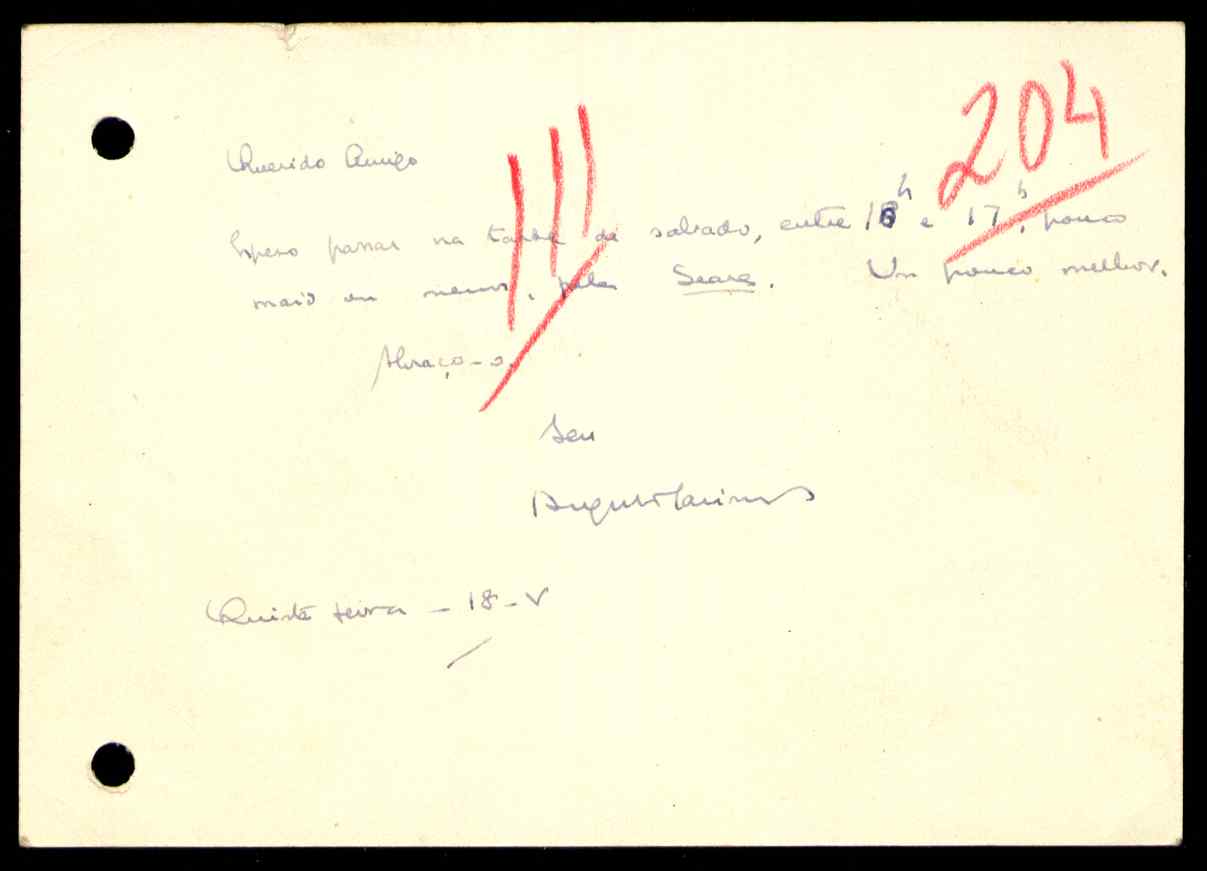 204
III
Querido Amigo
Espero passar na tarde de sabado, entre 16h e 17h, pouco
mais ou menos, pela Seara. Um pouco melhor.
Abraço-o.
Seu
Quinta feira - 18-V